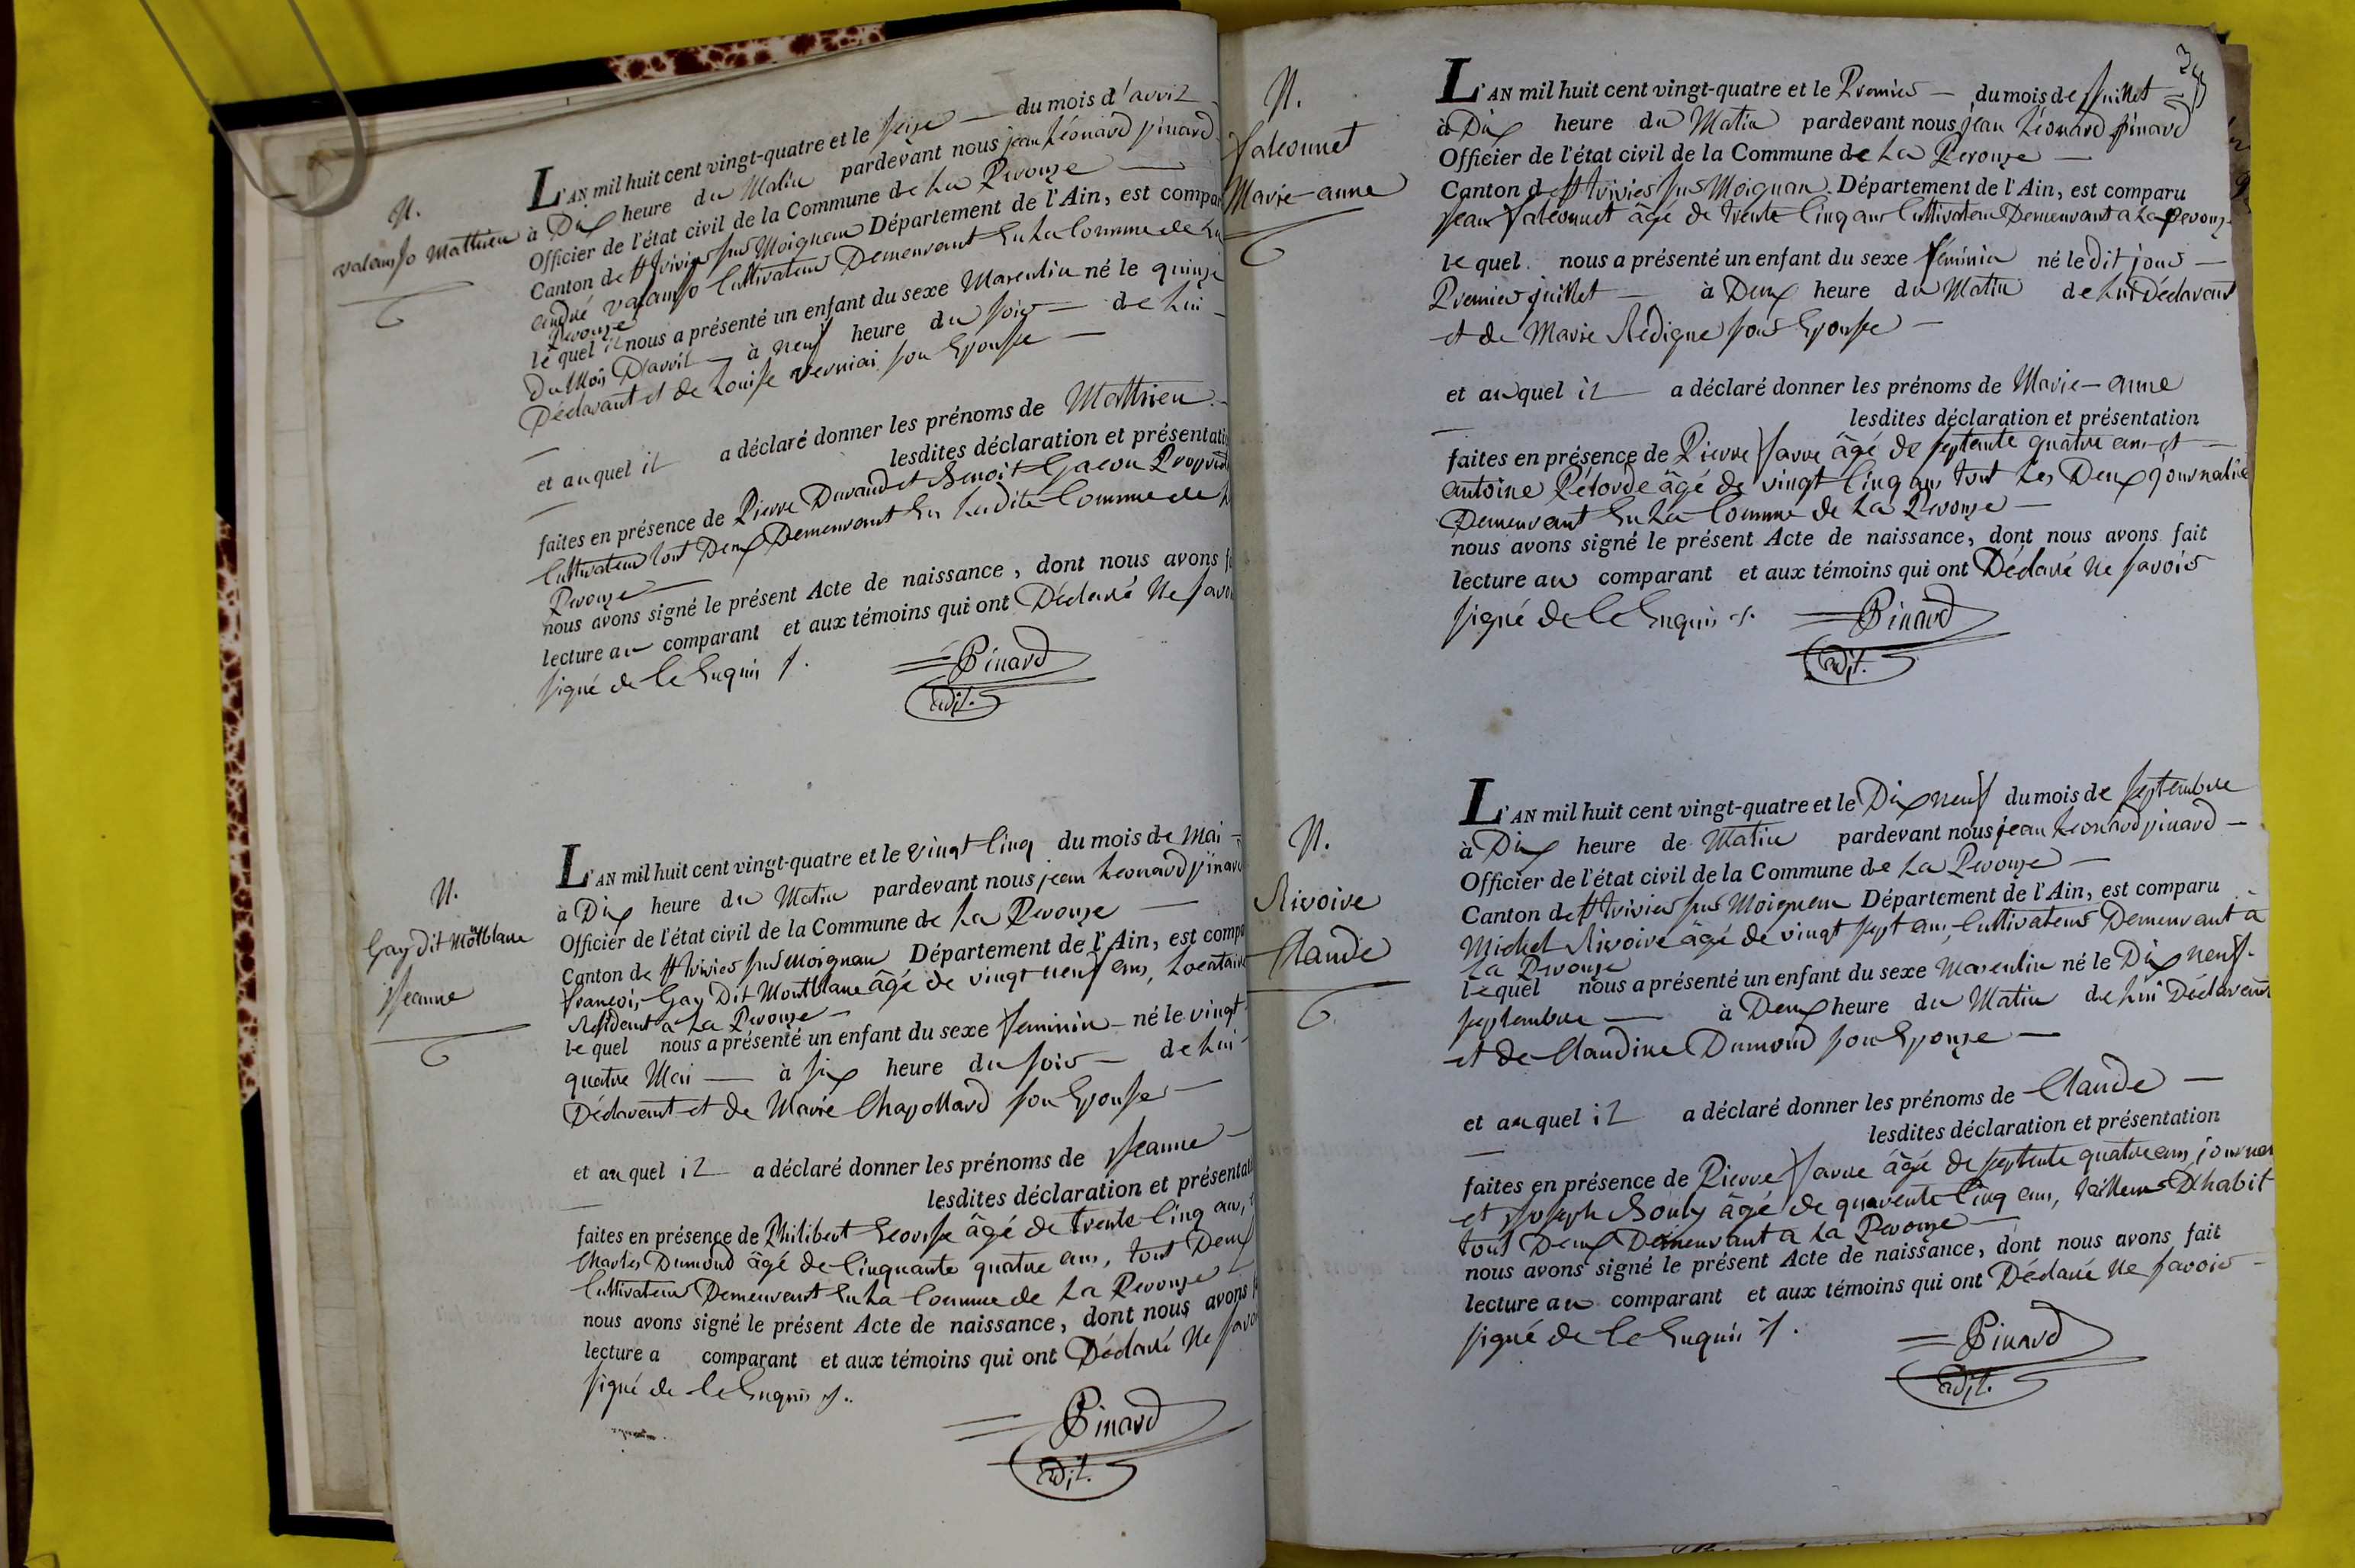 N.
valansio Mathieu
L'AN mil huit cent vingt-quatre et le seize — du mois d'avril
à Dix heure du Matin pardevant nous jean Léonard pinard
Officier de l'état civil de la Commune de La Perouze —
Canton de St trivier sur Moignan Département de l'Ain, est compar
andré valansio Cultivateur Demeurant En La Commune de La
Perouze
lequel il nous a présenté un enfant du sexe Masculin né le quinze
Du Mois D'avril — à neuf heure du soir — de Lui —
Déclarant et de Louise verniai son Epouse —
et auquel il a déclaré donner les prénoms de Mathieu —
— lesdites déclaration et présentati
faites en présence de Pierre Durand et Benoit Gacon Propriet
Cultivateur tout Deux Demeurant En Ladite Commune de L
Perouze —
nous avons signé le présent Acte de naissance, dont nous avons f
lecture au comparant et aux témoins qui ont Déclaré Ne savoi
signé de Ce Enquis
Pinard
adjt.
N.
Gay Dit Montblanc
Jeanne
L'AN mil huit cent vingt-quatre et le vingt Cinq du mois de Mai —
à Dix heure du Matin pardevant nous jean Leonard pinard
Officier de l'état civil de la Commune de La Perouze —
Canton de St trivier sur Moignan Département de l'Ain, est compa
françois Gay Dit Montblanc âgé de vingt neuf ans, Locataire
Résident a La Perouze —
lequel nous a présenté un enfant du sexe feminin — né le vingt
quatre Mai — à six heure du soir — de Lui —
Déclarant et de Marie Chapollard son Epouse —
et auquel il a déclaré donner les prénoms de Jeanne —
— lesdites déclaration et présentati
faites en présence de Philibert âgé de trente Cinq ans,
Charles Dumond âgé de Cinquante quatre ans, tout Deux
Cultivateur Demeurant En La Commune de La Perouze —
nous avons signé le présent Acte de naissance, dont nous avons f
lecture a comparant et aux témoins qui ont Déclaré Ne savo
signé de Ce Enquis
Pinard
adjt.
N.
falconnet
Marie-anne
3
L'AN mil huit cent vingt-quatre et le Premier — du mois de Juillet —
à Dix heure du Matin pardevant nous jean Léonard pinard
Officier de l'état civil de la Commune de La Perouze —
Canton de St trivier sur Moignan Département de l'Ain, est comparu
Jean falconnet âgé de trente Cinq ans Cultivateur Demeurant a La Perouz.
lequel nous a présenté un enfant du sexe féminin né le dit jour —
Premier juillet — à Deux heure du Matin de Lui Déclarant
et de Marie Redigne son Epouse —
et auquel il — a déclaré donner les prénoms de Marie-anne
— lesdites déclaration et présentation
faites en présence de Pierre favre âgé de septante quatre ans et —
antoine Pélorde âgé de vingt Cinq ans tout Les Deux journalié
Demeurant En La Commune de La Perouze —
nous avons signé le présent Acte de naissance, dont nous avons fait
lecture au comparant et aux témoins qui ont Déclaré Ne savoir
signé de Ce Enquis
Pinard
adjt.
N.
Rivoire
Claude
L'AN mil huit cent vingt-quatre et le Dix neuf du mois de septembre
à Dix heure de Matin pardevant nous jean Leonard pinard —
Officier de l'état civil de la Commune de La Perouze —
Canton de St trivier sur Moignan Département de l'Ain, est comparu
Michel Rivoire âgé de vingt sept ans, Cultivateur Demeurant à
La Perouze
lequel nous a présenté un enfant du sexe Masculin né le Dix neuf
septembre — à Deux heure du Matin de Lui Déclarant
et de Claudine Dumond son Epouze —
et auquel il a déclaré donner les prénoms de Claude —
— lesdites déclaration et présentation
faites en présence de Pierre favre âgé de septente quatre ans journal
et Joseph Bouly âgé de quarente Cinq ans, tailleur D'habit
tout Deux Demeurant a La Perouze —
nous avons signé le présent Acte de naissance, dont nous avons fait
lecture au comparant et aux témoins qui ont Déclaré Ne savoir —
signé de Ce Enquis
Pinard
adjt.